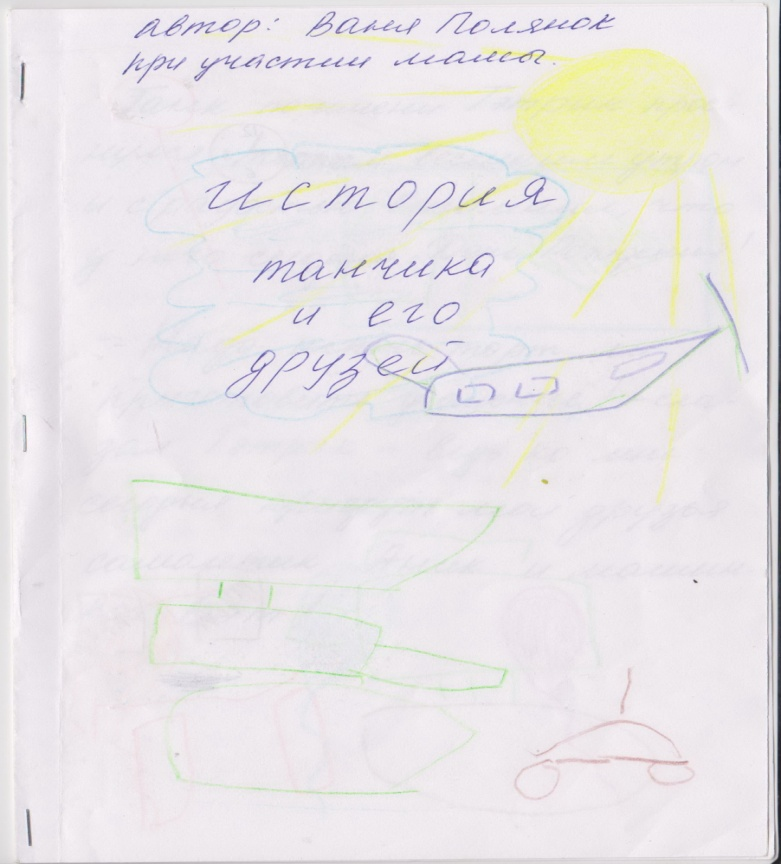 автор: Ваня Полянок
при участии мамы.
История
танчика
и его
друзей